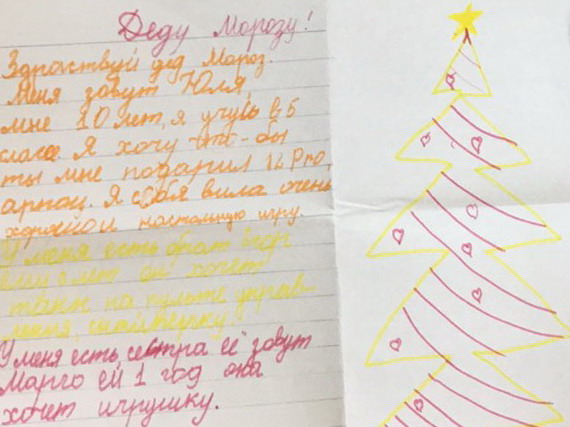 Деду Морозу!
Здравствуй дед Мороз.
Меня зовут Юля,
мне 10 лет, я учусь в 5
класе. Я хочу что-бы
ты мне подарил 12 Pro,
арпоп. Я себя вила очень
хорошо и настольную игру.
У меня есть брат Егор
ему 6 лет он хочет
танк на пульте управ-
ления,
У меня есть сестра её зовут
Марго ей 1 год она
хочет игрушку.